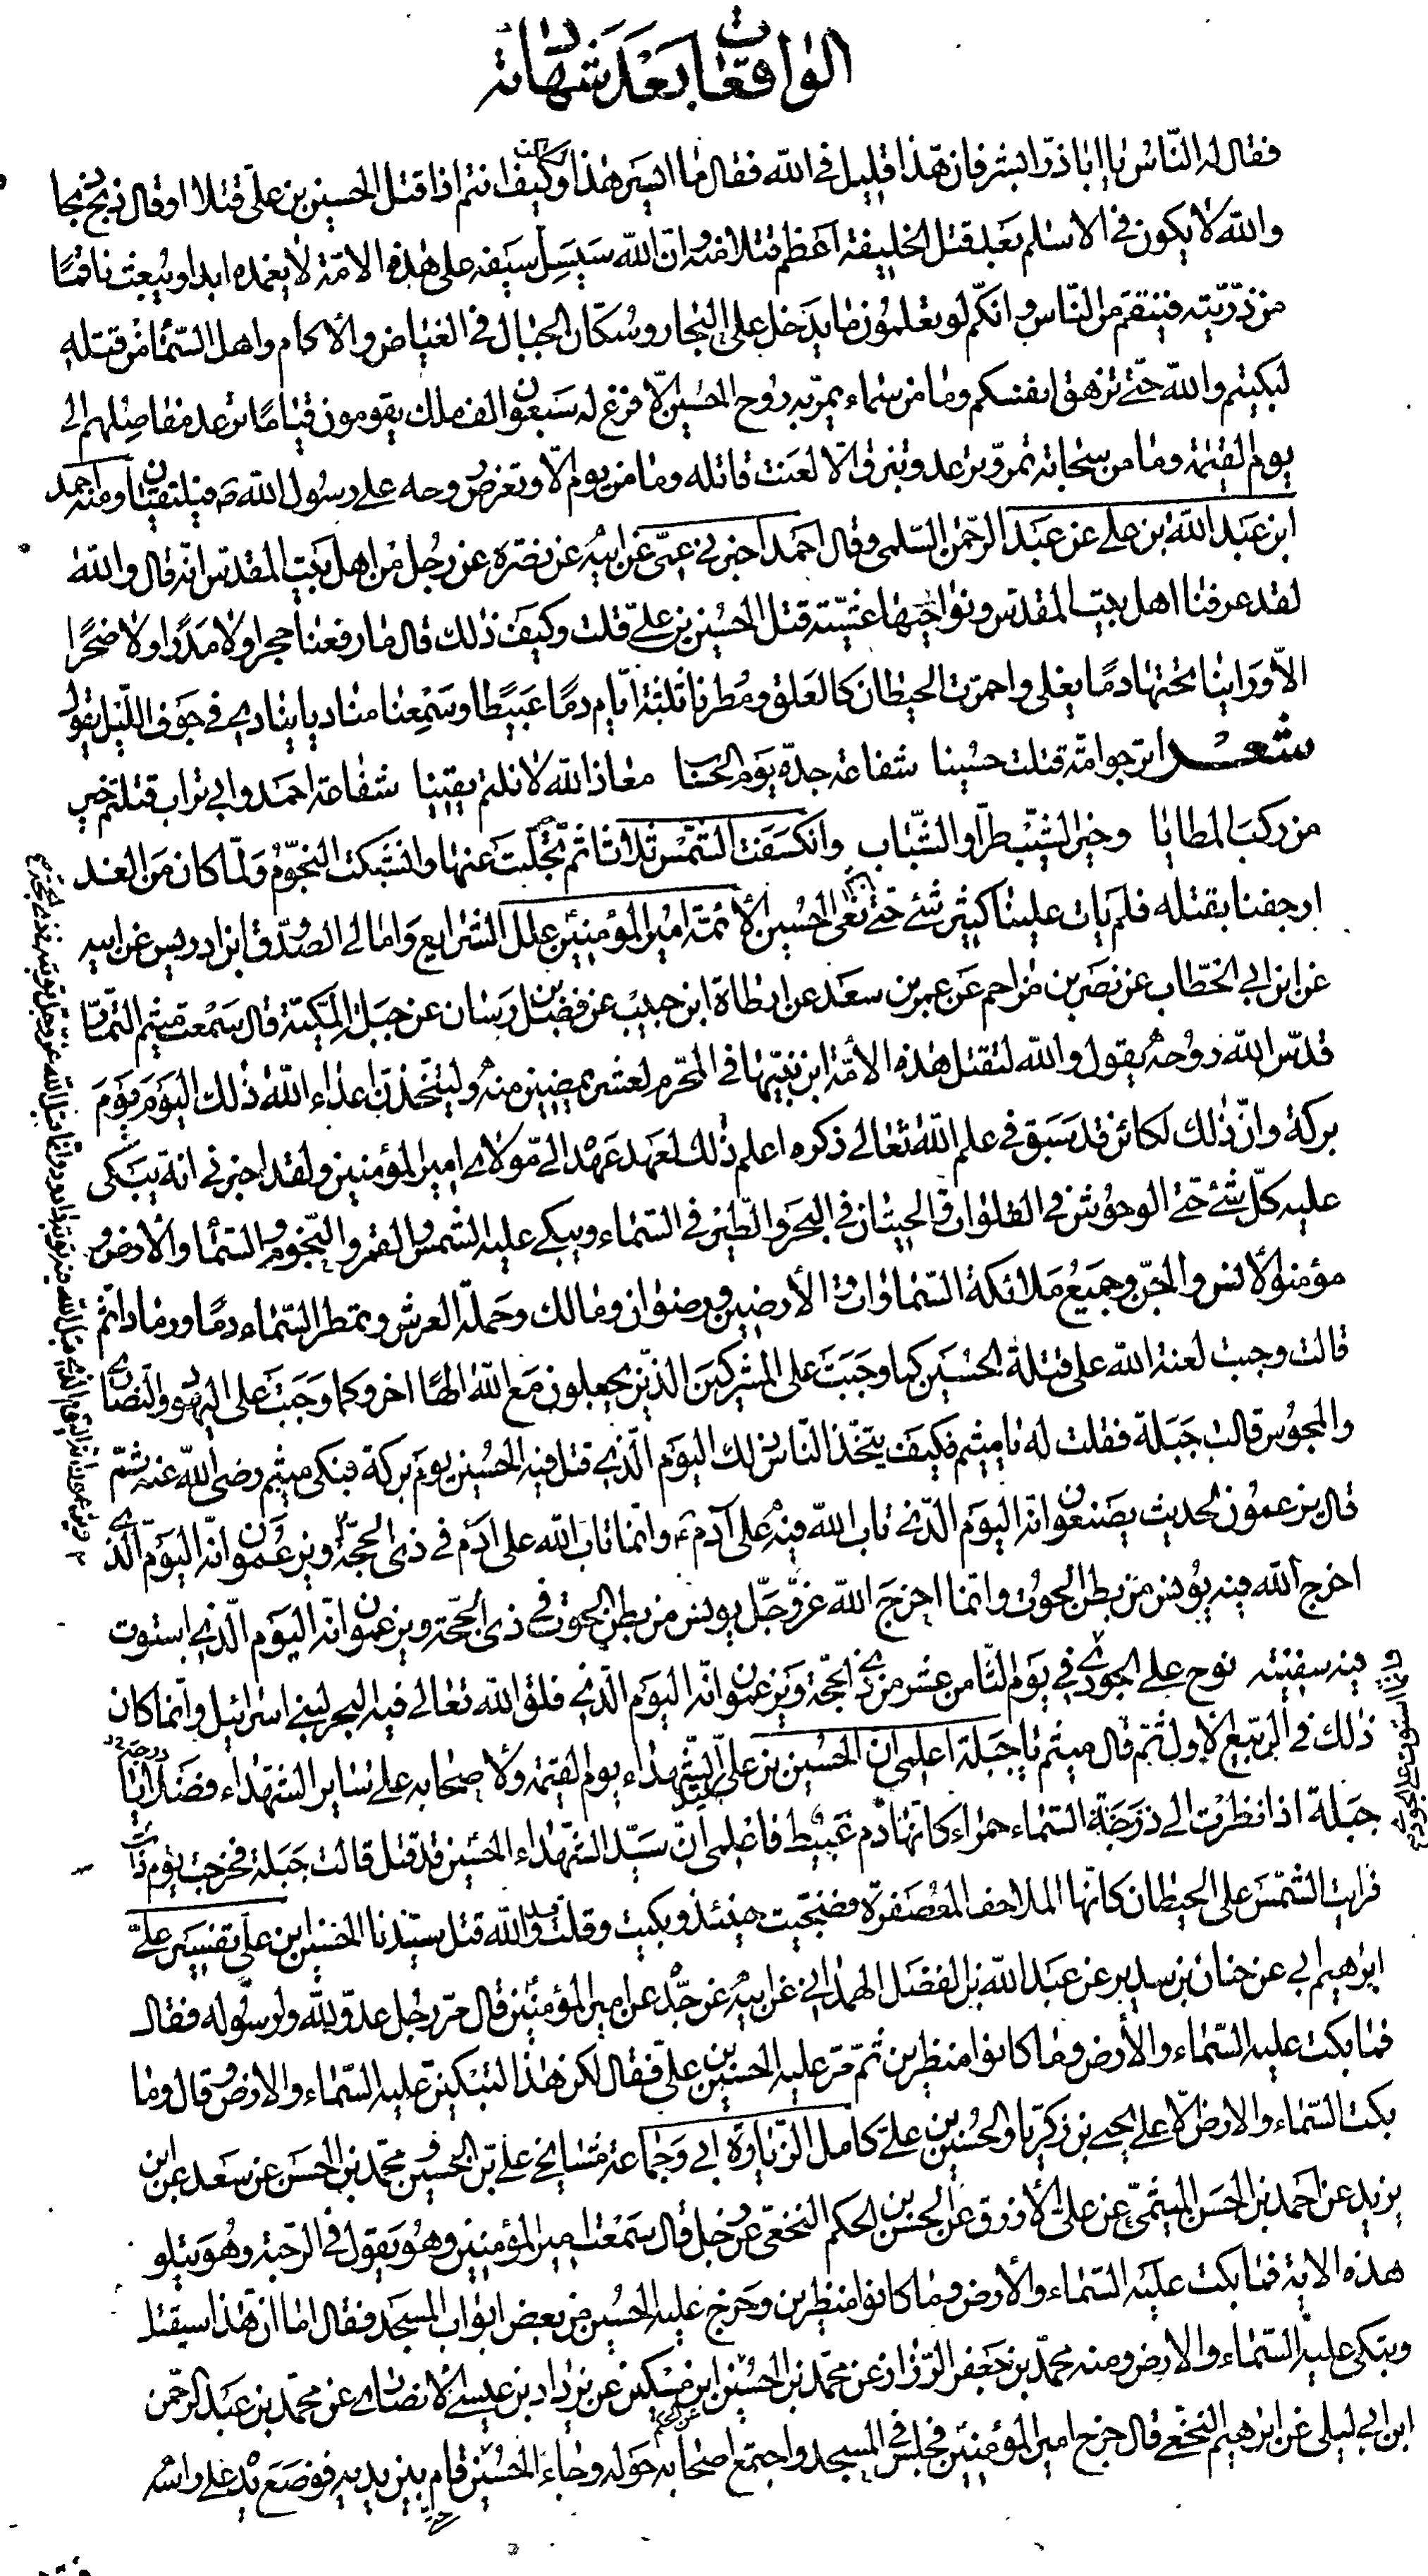 الواقعات بعد شهادته
فقال له الناس يا ابا ذر ابشر فان هذا قليل في الله فقال ما ايسر هذا وكيف انتم اذا قتل الحسين بن علي قتلا او قال ذبح ذبحا
والله لا يكون في الاسلام بعد قتل الخليفة اعظم قتلا منه وان الله سيسل سيفه على هذه الامة لا يغمده ابدا ويبعث ناقما
من ذريته فينتقم من الناس وانكم لو تعلمون ما يدخل على البحار وسكان الجبال في الغياض والاكام واهل السماء من قتله
لبكيتم والله حتى تزهق انفسكم وما من سماء يمر به روح الحسين الا فزع له سبعون الف ملك يقومون قياما ترعد مفاصلهم الى
يوم القيمة وما من سحابة تمر وترعد وتبرق الا لعنت قاتله وما من يوم الا وتعرض روحه على رسول الله ص فيلتقيان ومنه احمد
ابن عبد الله بن علي عن عبد الرحمن السلمي وقال احمد اخبرني عمي عن ابيه عن نضرة عن رجل من اهل بيت المقدس انه قال والله
لقد عرفنا اهل بيت المقدس ونواحيها عشية قتل الحسين بن علي قلت وكيف ذلك قال ما رفعنا حجرا ولا مدرا ولا صخرا
الا ورأينا تحتها دما يغلي واحمرت الحيطان كالعلق ومطرنا ثلثة ايام دما عبيطا وسمعنا مناديا ينادي في جوف الليل يقول
شعر اترجوا مة قتلت حسينا شفاعة جده يوم الحسنا معاذ الله لا نلتم يقينا شفاعة احمد وابي تراب قتلتم خير
من ركب المطايا وخير الشيب طرا والشباب وانكسفت الشمس ثلاثا ثم تجلت عنها وانشبكت النجوم ولما كان من الغد
ارجفنا بقتله فلم يات علينا كثير شئ حتى نعي الحسين الأئمة امير المؤمنين علل الشرايع وامالي الصدوق ابن ادريس عن ابيه
عن ابن ابي الخطاب عن نصر بن مزاحم عن عمر بن سعد عن ارطاة ابن حبيب عن فضيل بن رسان عن جبلة المكية قال سمعت ميثم التمار
قدس الله روحه يقول والله لتقتل هذه الأمة ابن نبيها في المحرم لعشر يمضين منه وليتخذن اعداء الله ذلك اليوم يوم
بركة وان ذلك لكائن قد سبق في علم الله تعالى ذكره اعلم ذلك لعهد عهد الي مولاي امير المؤمنين ولقد اخبرني انه يبكي
عليه كل شئ حتى الوحوش في الفلوات والحيتان في البحر والطير في السماء ويبكي عليه الشمس والقمر والنجوم والسماء والأرض و
مؤمنوا الأنس والجن وجميع ملائكة السماوات والأرضين ورضوان ومالك وحملة العرش وتمطر السماء دما ورمادا ثم
قالت وجبت لعنة الله على قتلة الحسين كما وجبت على المشركين الذين يجعلون مع الله الها اخر وكما وجبت على اليهود والنصارى
والمجوس قالت جبلة فقلت له يا ميثم فكيف يتخذ الناس ذلك اليوم الذي قتل فيه الحسين يوم بركة فبكى ميثم رضي الله عنه ثم
قال يزعمون لحديث يضعونه انه اليوم الذي تاب الله فيه على آدم ع وانما تاب الله على ادم في ذي الحجة ويزعمون انه اليوم الذي
اخرج الله فيه يونس من بطن الحوت وانما اخرج الله عز وجل يونس من بطن الحوت في ذي الحجة ويزعمون انه اليوم الذي استوت
فيه سفينة نوح على الجودي في يوم الثامن عشر من ذي الحجة ويزعمون انه اليوم الذي فلق الله تعالى فيه البحر لبني اسرائيل وانما كان
ذلك في الربيع الاول ثم قال ميثم يا جبلة اعلمي ان الحسين بن علي سيد الشهداء يوم القيمة ولأصحابه على ساير الشهداء فضلا درجة يا
جبلة اذا نظرت الى درجة السماء حمراء كانها دم عبيط فاعلمي ان سيد الشهداء الحسين قد قتل قالت جبلة فخرجت يوم ذات
فرايت الشمس على الحيطان كانها الملاحف المعصفرة فضججت حينئذ وبكيت وقلت قد والله قتل سيدنا الحسين ابن علي تفسير علي
ابرهيم ابي عن حنان بن سدير عن عبد الله بن الفضل الهمداني عن ابيه عن جده عن امير المؤمنين قال مر رجل عدو لله ولرسوله فقال
فما بكت عليه السماء والأرض وما كانوا منظرين ثم مر عليه الحسين بن علي فقال لكن هذا لتبكين عليه السماء والارض وقال وما
بكت السماء والارض الا على يحيى بن زكريا والحسين بن علي كامل الزيارة ابي وجماعة مشايخي علي بن الحسين ومحمد بن الحسن عن سعد عن ابن
يزيد عن احمد بن الحسن الميثمي عن علي الأزرق عن الحسن بن الحكم النخعي عن رجل قال سمعت امير المؤمنين وهو يقول في الرحبة وهو يتلو
هذه الاية فما بكت عليه السماء والأرض وما كانوا منظرين وخرج عليه الحسين من بعض ابواب المسجد فقال اما ان هذا سيقتل
وتبكي عليه السماء والارض ومنه محمد بن جعفر الرزاز عن محمد بن الحسين ابن مسكين عن يزداد بن عيسى الأنصاري عن محمد بن عبد الرحمن
ابن ابي ليلى عن ابرهيم النخعي قال خرج امير المؤمنين فجلس في المسجد واجتمع اصحابه حوله وجاء الحسين حتى قام بين يديه فوضع يده على راسه
وانما استوت على الجودي
ويزعمون انه اليوم الذي قبل الله فيه توبة داود وانما قبل الله عز وجل توبته في ذي الحجة